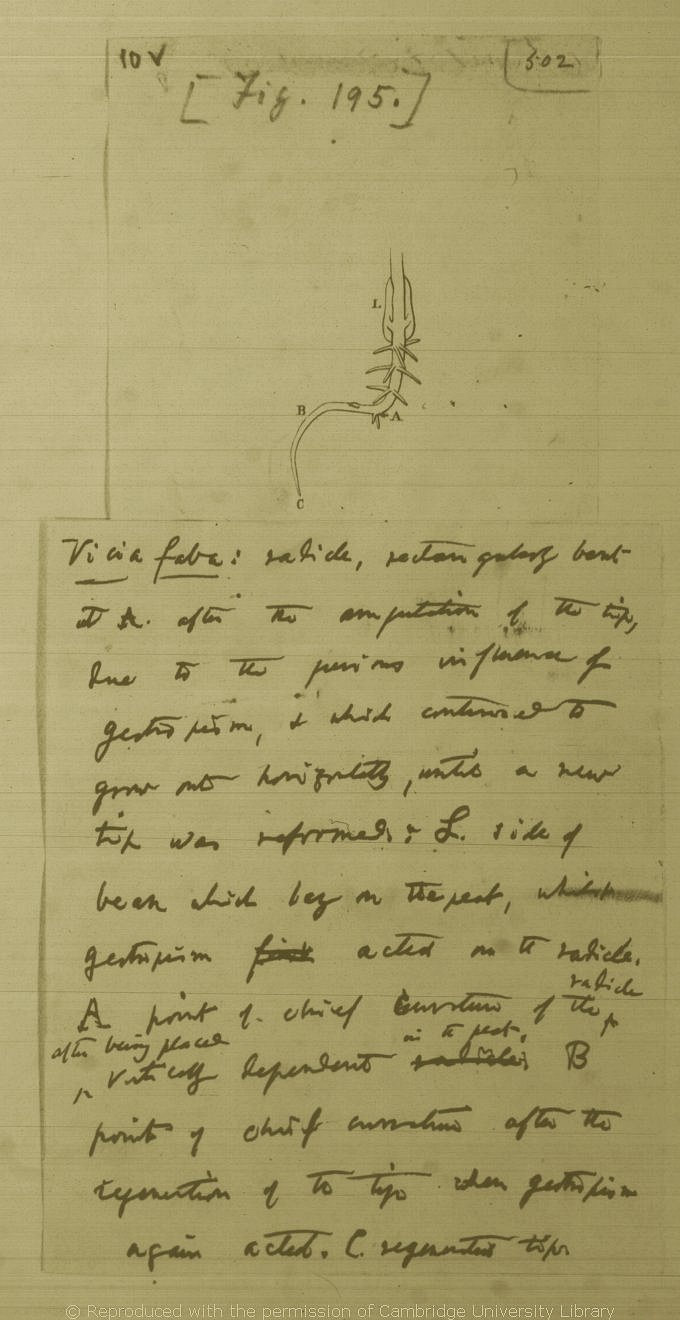 10 V
502
[Fig. 195.]
L.
B
A
C
Vicia faba: radicle, rectangularly bent
at A. after the amputation of the tip,
due to the previous influence of
geotropism, & which continued to
grow out horizontally, until a new
tip was reformed: L. side of
bean which lay on the peat, whilst
geotropism acted on the radicle.
A point of chief curvature of the radicle
after being placed
vertically dependent in the peat, B
points of chief curvature after the
regeneration of the tip when geotropism
again acted. C. regenerated tip.
© Reproduced with the permission of Cambridge University Library